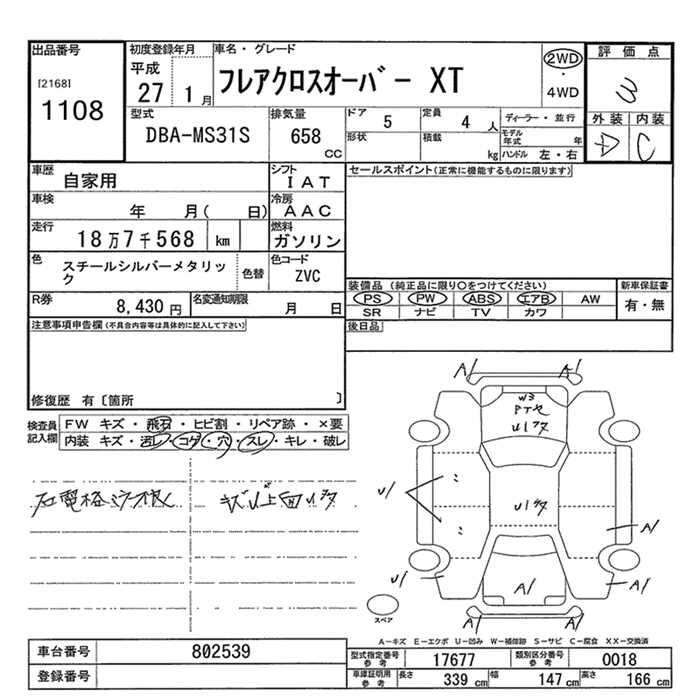 出品番号
[2168]
1108
初度登録年月
平成
27 1月
車名・グレード
フレアクロスオーバー XT
2WD
・
4WD
評価点
3
外装 内装
A C
型式
DBA-MS31S
排気量
658
CC
ドア
5
定員
4 人
形状
積載
kg
ディーラー・並行
モデル年式 年
ハンドル 左・右
車歴
自家用
シフト
IAT
車検
年 月( 日)
冷房
AAC
走行
18万7千568 km
燃料
ガソリン
色
スチールシルバーメタリック
色替
色コード
ZVC
R券
8,430 円
名変通知期限
月 日
セールスポイント(正常に機能するものに限ります)
装備品 (純正品に限り○をつけてください)
PS PW ABS エアB AW
SR ナビ TV カワ
新車保証書
有・無
後日品
注意事項申告欄(不具合内容等は具体的に記入して下さい)
修復歴 有〔箇所 〕
検査員記入欄
FW キズ・飛石・ヒビ割・リペア跡・×要
内装 キズ・汚レ・コゲ・穴・スレ・キレ・破レ
A1 A1
W3
U1
U1
U1
A1
U1
A1
A1
A1 A1
スペア
A-キズ E-エクボ U-凹み W-補修跡 S-サビ C-腐食 XX-交換済
車台番号
802539
登録番号
型式指定番号
参考
17677
類別区分番号
参考
0018
車庫証明用
参考
長さ
339 cm
幅
147 cm
高さ
166 cm